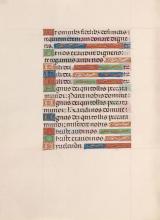 Ut omnibus fidelibus defunctis
requiem eternam donare digne
ris
Ut nos exaudire digneris
te rogamus audi nos
Fili dei
Fili dei
Agnus dei qui tollis peccata
mundi parce nobis domine
Agnus dei qui tollis peccata
mundi nos domine
Agnus dei qui tollis peccata
mundi nobis
Christe audi nos
Christe exaudi nos
Kyrieleison